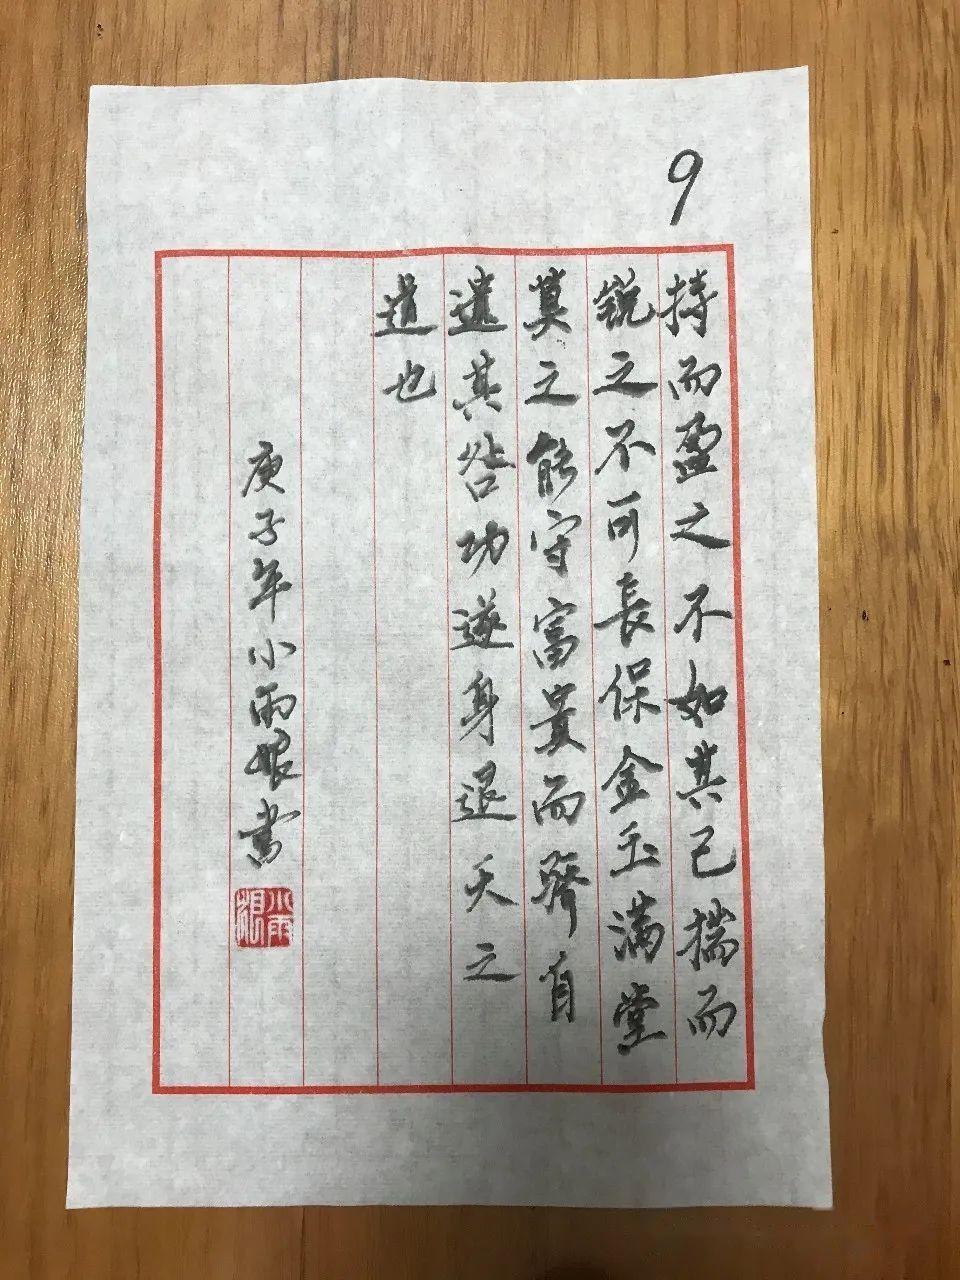 9
持而盈之不如其已揣而
銳之不可長保金玉滿堂
莫之能守富貴而驕自
遺其咎功遂身退天之
道也
庚子年小雨書
小雨